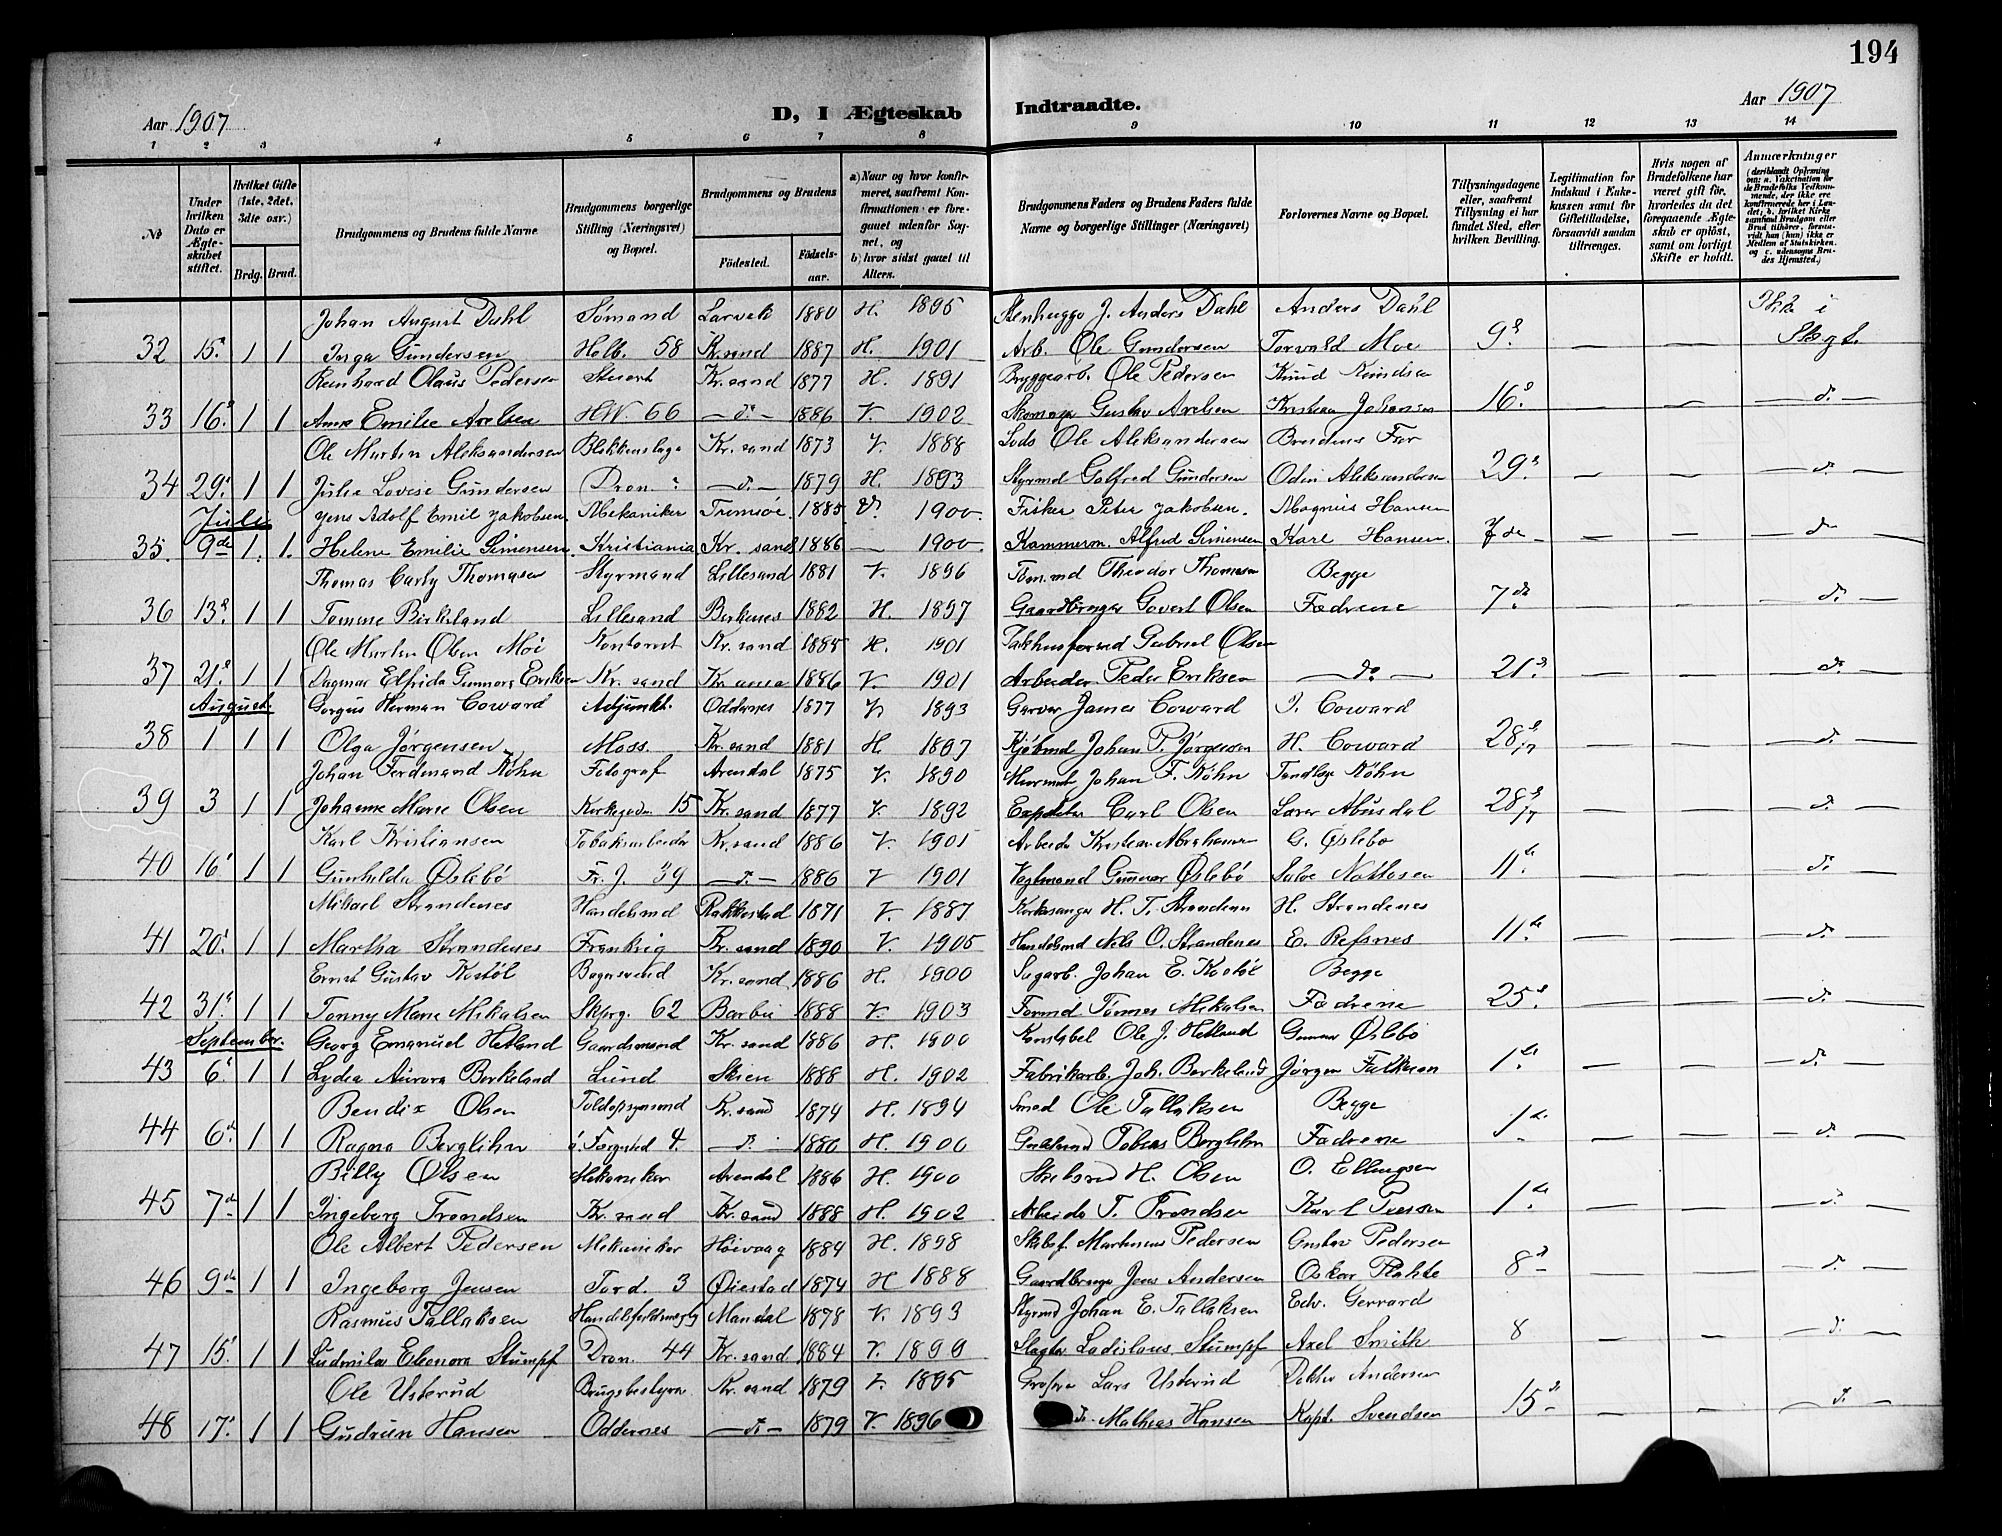 194
Aar 1907
D, I Ægteskab Indtraadte.
Aar 1907
1 2 3 4 5 6 7 8 9 10 11 12 13 14
No
Under hvilken Dato er Ægteskabet stiftet.
Hvilket Gifte (1ste, 2det, 3die osv.)
Brdg. Brud.
Brudgommens og Brudens fulde Navne
Brudgommens borgerlige Stilling (Næringsvei) og Bopæl.
Brudgommens og Brudens
Fødested.
Fødselsaar.
a) Naar og hvor konfirmeret, saafremt Konfirmationen er foregaaet udenfor Sognet, og
b) hvor sidst gaaet til Alters.
Brudgommens Faders og Brudens Faders fulde Navne og borgerlige Stillinger (Næringsvei)
Forlovernes Navne og Bopæl.
Tillysningsdagene eller, saafremt Tillysning ei har fundet Sted, efter hvilken Bevilling.
Legitimation for Indskud i Enkekassen samt for Giftetilladelse, forsaavidt saadan tiltrænges.
Hvis nogen af Brudefolkene har været gift før, hvorledes da det foregaaende Ægteskab er opløst, samt om lovligt Skifte er holdt.
Anmærkninger
(deriblandt Oplysning om: a. Vakcination for de Brudefolks Vedkommende, der ikke ere konfirmerede her i Landet; b. hvilket Kirkesamfund Brudgom eller Brud tilhører, forsaavidt han (hun) ikke er Medlem af Statskirken, og c. udensogns Brudes Hjemsted.)
Johan August Dahl Sømand Larvik 1880 H. 1895 Stenhugge J. Anders Dahl Anders Dahl Ikke i
32 15. 1 1 Inga Gundersen Holb. 58 Kr.sand 1887 H. 1901 Arb. Ole Gundersen Torvald Moe 9. — — Slegt.
Reinhard Olaus Pedersen Kr.sand 1877 H. 1891 Bryggearb. Ole Pedersen Knud Knudsen
33 16. 1 1 Anna Emilie Axelsen HW. 66 — d. — 1886 V. 1902 Gustav Axelsen Kristian Johansen 16. — — d. —
Ole Martin Aleksandersen Blikkenslager Kr.sand 1873 V. 1888 Lods Ole Aleksandersen Brudens Far
34 29. 1 1 Julie Lovise Gundersen Dron. — d. — 1879 H. 1893 Styrmd Golfred Gundersen Odin Aleksandersen 29. — — d. —
Juli
Jens Adolf Emil Jakobsen. Mekaniker Tromsøe. 1885 V. 1900. Fisker Peter Jakobsen. Magnus Hansen
35. 9de 1. 1. Helene Emilie Simensen. Kristiania Kr. sand. 1886 — 1900. Alfred Simensen Karl Hansen. 7de — — do —
Thomas Carly Thomasen Styrmand Lillesand 1881 V. 1896 Tømmd Theodor Thomasen Begge
36 13. 1 1 Tomine Birkeland Lillesand Birkenes 1882 H. 1897 Gaardbruger Govert Olsen Fædrene 7de — — d. —
Ole Martin Olsen Møi Kontorist Kr.sand 1885 H. 1901 Pakhusformd Gabriel Olsen
37 21. 1 1 Dagmar Elfrida Gunnora Eriksen Kr. sand Kr ania 1886 V. 1901 Arbeider Peder Eriksen — do — 21. — — do —
August.
Gorgus Herman Coward Adjunkt. Oddernes 1877 V. 1893 Garver James Coward J. Coward
38 1 1 1 Olga Jørgensen Moss. Kr.sand 1881 H. 1897 Kjøbmd Johan P. Jørgensen H. Coward 28/7 — — d. —
Johan Ferdinand Køhn Fotograf Arendal 1875 V. 1890 Johan F. Køhn Tandlæge Køhn
39 3 1 1 Johanne Marie Olsen Kirkegadn. 15 Kr.sand 1877 V. 1892 Carl Olsen Lærer Abusdal 28/7 — — d. —
Karl Kristiansen Tobaksarbeider Kr.sand 1886 V. 1901 Arbeider Kristian Abrahamsen G. Øslebø
40 16. 1 1 Gunhilda Øslebø Fr. J. 39 — d. — 1886 V 1901 Vegtmand Gunnar Øslebø Salve Nottesen 11. — — d. —
Mikael Strandenes Handelsmd Rakkestad 1871 V. 1887 Kirkesanger H. T. Strandenes H. Strandenes
41 20. 1 1 Martha Strandenes Frankrig Kr.sand 1890 V. 1905 Handelsmd Nils O. Strandenes E. Refsnes 11. — — d. —
Ernst Gustav Kostøl Bagersvend Kr.sand 1886 H. 1900 Sagarb. Johan E. Kostøl Begge
42 31. 1 1 Tonny Marie Mikalsen 62 Barbu 1888 V. 1903 Formd Tønnes Mikalsen Fædrene 25. — — d. —
September.
Georg Emanuel Hetland Gaardsmand Kr.sand 1886 H. 1900 Konstabel Ole J. Hetland Gunnar Øslebø
43 6. 1 1 Lydia Aurora Berkeland Lund Skien 1888 H. 1902 Fabrikarb. Joh. Berkeland Jørgen Falkesen 1. — — d. —
Bendix Olsen Toldopsynsmd Kr.sand 1874 H. 1894 Smed Ole Tallaksen Begge
44 6. 1 1 Ragna Berglihn ö. Torgsted 4. — d. — 1880 H. 1900 Tobias Berglihn Fædrene 1. — — d. —
Billy Olsen Mekaniker Arendal 1886 H. 1900 H. Olsen O. Ellingsen
45 7. 1 1 Ingeborg Trondsen Kr.sand Kr.sand 1888 H. 1902 Arbeider T. Trondsen Karl 1. — — d.
Ole Albert Pedersen Mekaniker Høivaag 1884 H. 1898 Skibsf. Martinius Pedersen Gustav Pedersen
46 9de 1 1 Ingeborg Jensen Tord. 3 Øiestad 1874 H 1888 Gaardbruger Jens Andersen Oskar 8. — — d. —
Rasmus Tallaksen Mandal 1878 V. 1893 Styrmd Johan E. Tallaksen Edv. Gerrard
47 15. 1 1 Ludmila Eleonora Stumpf Dron. 44 Kr.sand. 1884 V. 1899 Slagter Ladislaus Stumpf Axel Smith 8 — — d. —
Ole Usterud Brugsbestyrer Kr.sand 1879 V. 1895 Lars Usterud Doktor Andersen
48 17. 1 1 Gudrun Hansen Oddernes — d. — 1879 V. 1896 Mathias Hansen Kapt. Svendsen 15. — — d. —